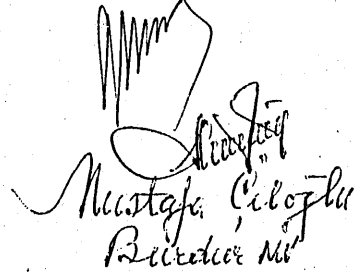 Mustafa Çiloğlu
Burdur M.